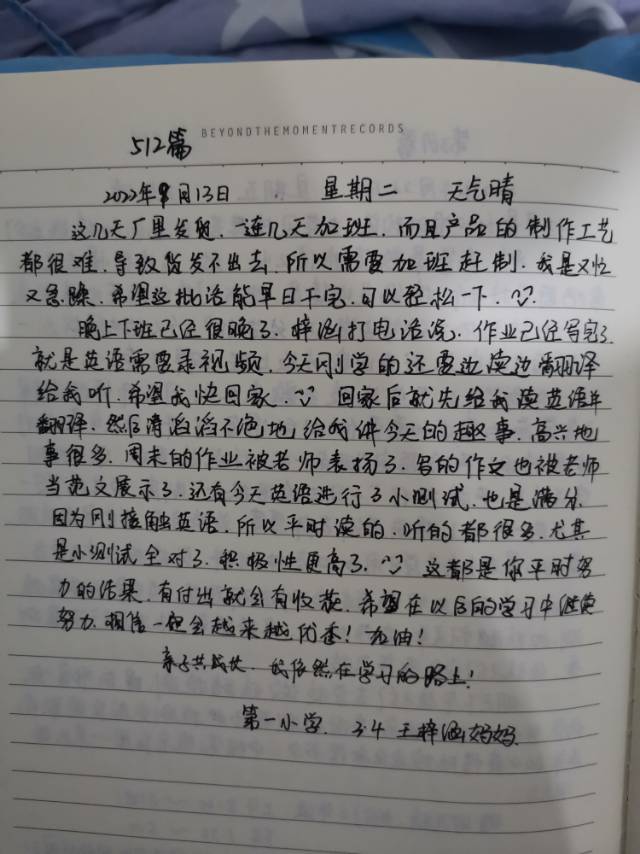 BEYONDTHEMOMENTRECORDS
512篇
2022年9月13日 星期二 天气晴
这几天厂里发货,一连几天加班,而且产品的制作工艺
都很难,导致货发不出去,所以需要加班赶制,我是又忙
又急躁,希望这批活能早日干完,可以轻松一下。
晚上下班已经很晚了,梓涵打电话说,作业已经写完了
就是英语需要录视频,今天刚学的还要边读边翻译
给我听,希望我快回家。 回家后就先给我读英语并
翻译,然后滔滔不绝地给我讲今天的趣事,高兴地
事很多,周末的作业被老师表扬了,写的作文也被老师
当范文展示了,还有今天英语进行了小测试,也是满分
因为刚接触英语,所以平时读的、听的都很多,尤其
是小测试全对了,积极性更高了。 这都是你平时努
力的结果,有付出就会有收获,希望在以后的学习中继续
努力,相信一定会越来越优秀!加油!
亲子共成长,我依然在学习的路上!
第一小学 3.4 王梓涵妈妈